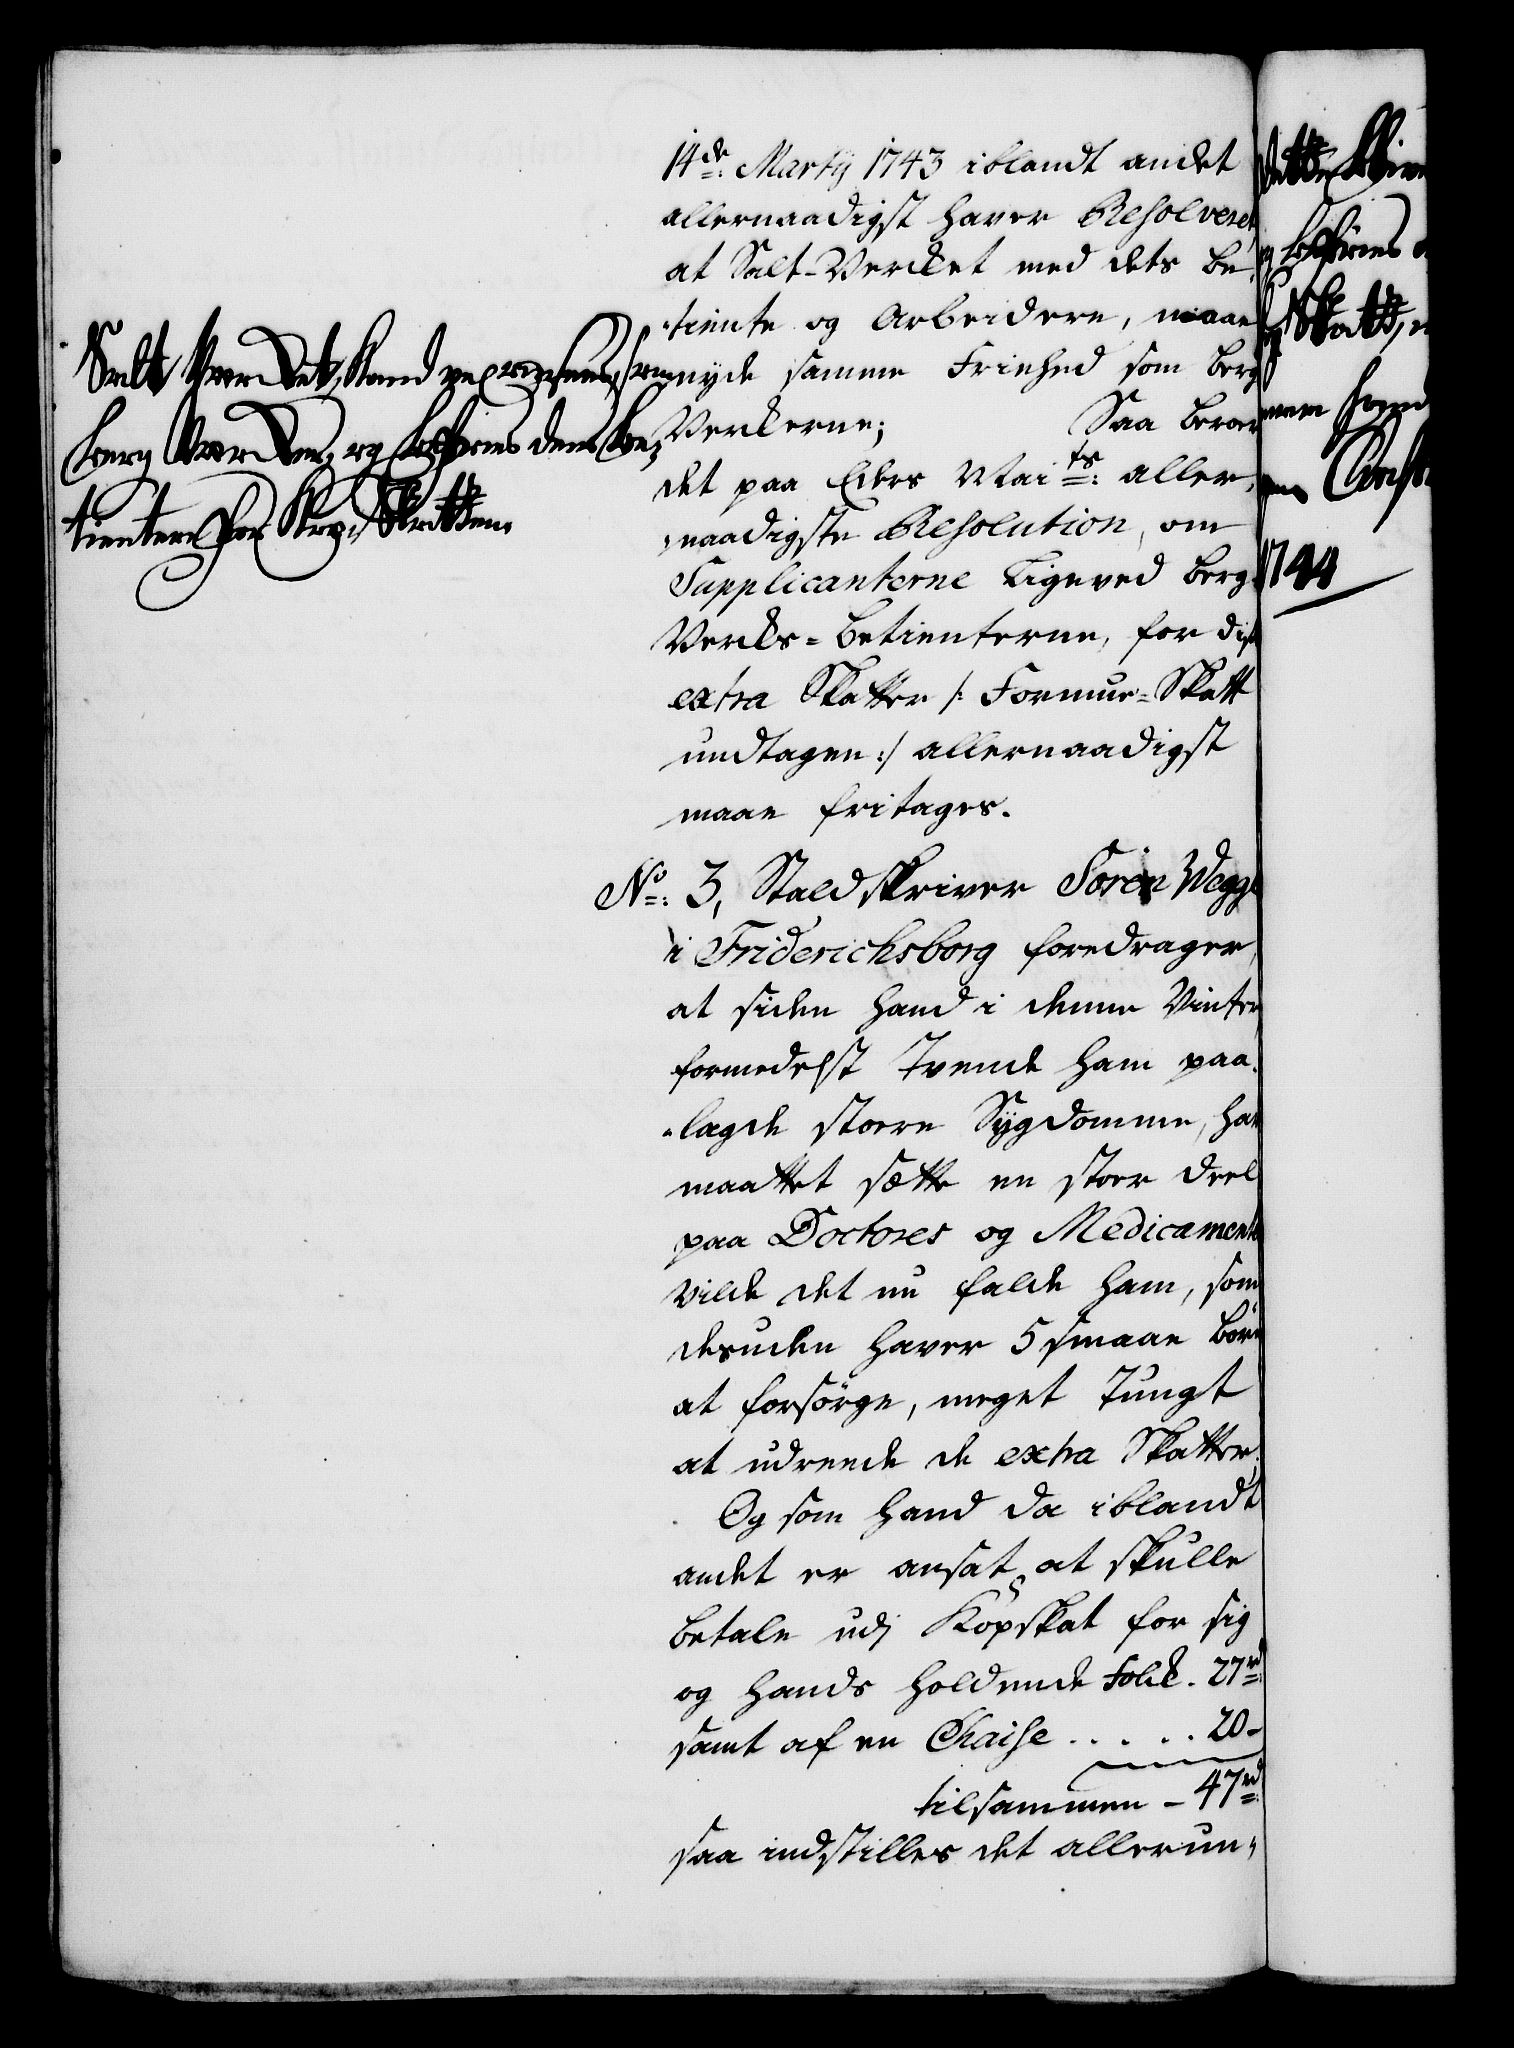 14de Martij 1743 iblandt andet
allernaadigst haver Resolveret
at Salt-Verket med dets be-
tiente og Arbeidere, maae
nyde samme Friehed som berg
Verkerne; Saa beroer
det paa Eders Mai:ts aller-
naadigste Resolution, om
Supplicanterne Ligeved berg-
Verks-betienterne, for disse
extra Skatter /: Formue-Skatt
undtagen :/ allernaadigst
maae fritages.
Salt Verket, kand
berg Verker, og befries dens be-
tientere for Kop-Skatten
No: 3, Staldskriver Sören
i Friderichsborg foredrager,
at siden hand i denne Vinter
formedelst Tvende ham paa-
lagde store Sygdomme, har
maattet sætte en stoer deel
paa Doctores og Medicamente
vilde det nu falde ham, som
desuden haver 5 smaae börn
at forsörge, meget Tungt
at udreede de extra Skatter.
Og som hand da iblandt
andet er ansat at skulle
betale udj Kopskat for sig
og hands holdende Folk. 27rd
samt af en Chaise . . . . . 20-
tilsammen - 47rd
saa indstilles det allerun-
Skatt,
1744